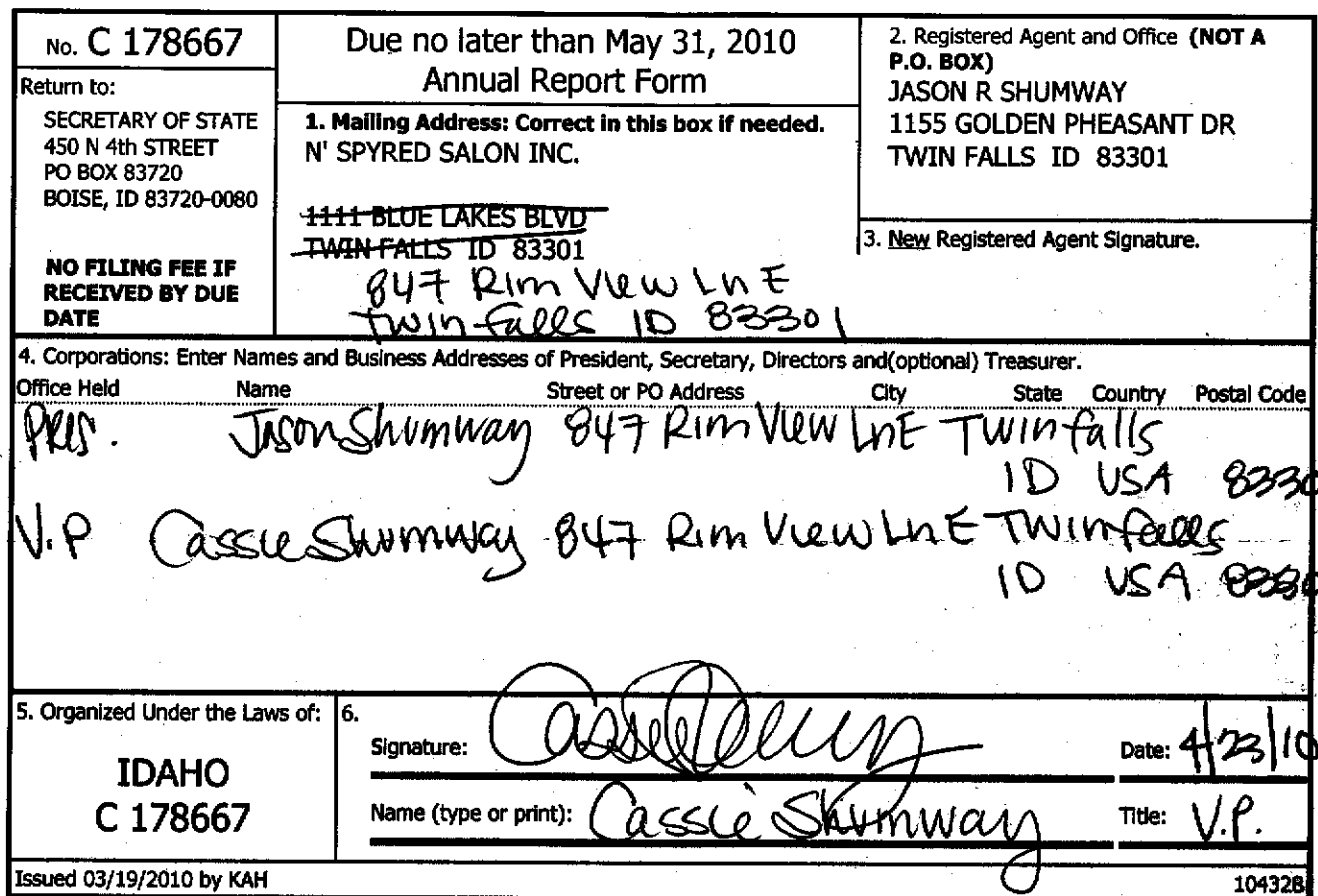 No. C 178667
Return to:
SECRETARY OF STATE
450 N 4th STREET
PO BOX 83720
BOISE, ID 83720-0080
NO FILING FEE IF
RECEIVED BY DUE
DATE
Due no later than May 31, 2010
Annual Report Form
1. Mailing Address: Correct in this box if needed.
N' SPYRED SALON INC.
1111 BLUE LAKES BLVD
TWIN FALLS ID 83301
847 Rim View Ln E
Twin falls ID 83301
2. Registered Agent and Office (NOT A
P.O. BOX)
JASON R SHUMWAY
1155 GOLDEN PHEASANT DR
TWIN FALLS ID 83301
3. New Registered Agent Signature.
4. Corporations: Enter Names and Business Addresses of President, Secretary, Directors and(optional) Treasurer.
Office Held Name Street or PO Address City State Country Postal Code
Pres. Jason Shumway 847 Rim View Ln E Twin falls
ID USA 8330
V.P Cassie Shumway 847 Rim View Ln E Twin falls
ID USA 8330
5. Organized Under the Laws of:
IDAHO
C 178667
6.
Signature: Date: 4/23/10
Name (type or print): Cassie Shumway Title: V.P.
Issued 03/19/2010 by KAH
104328